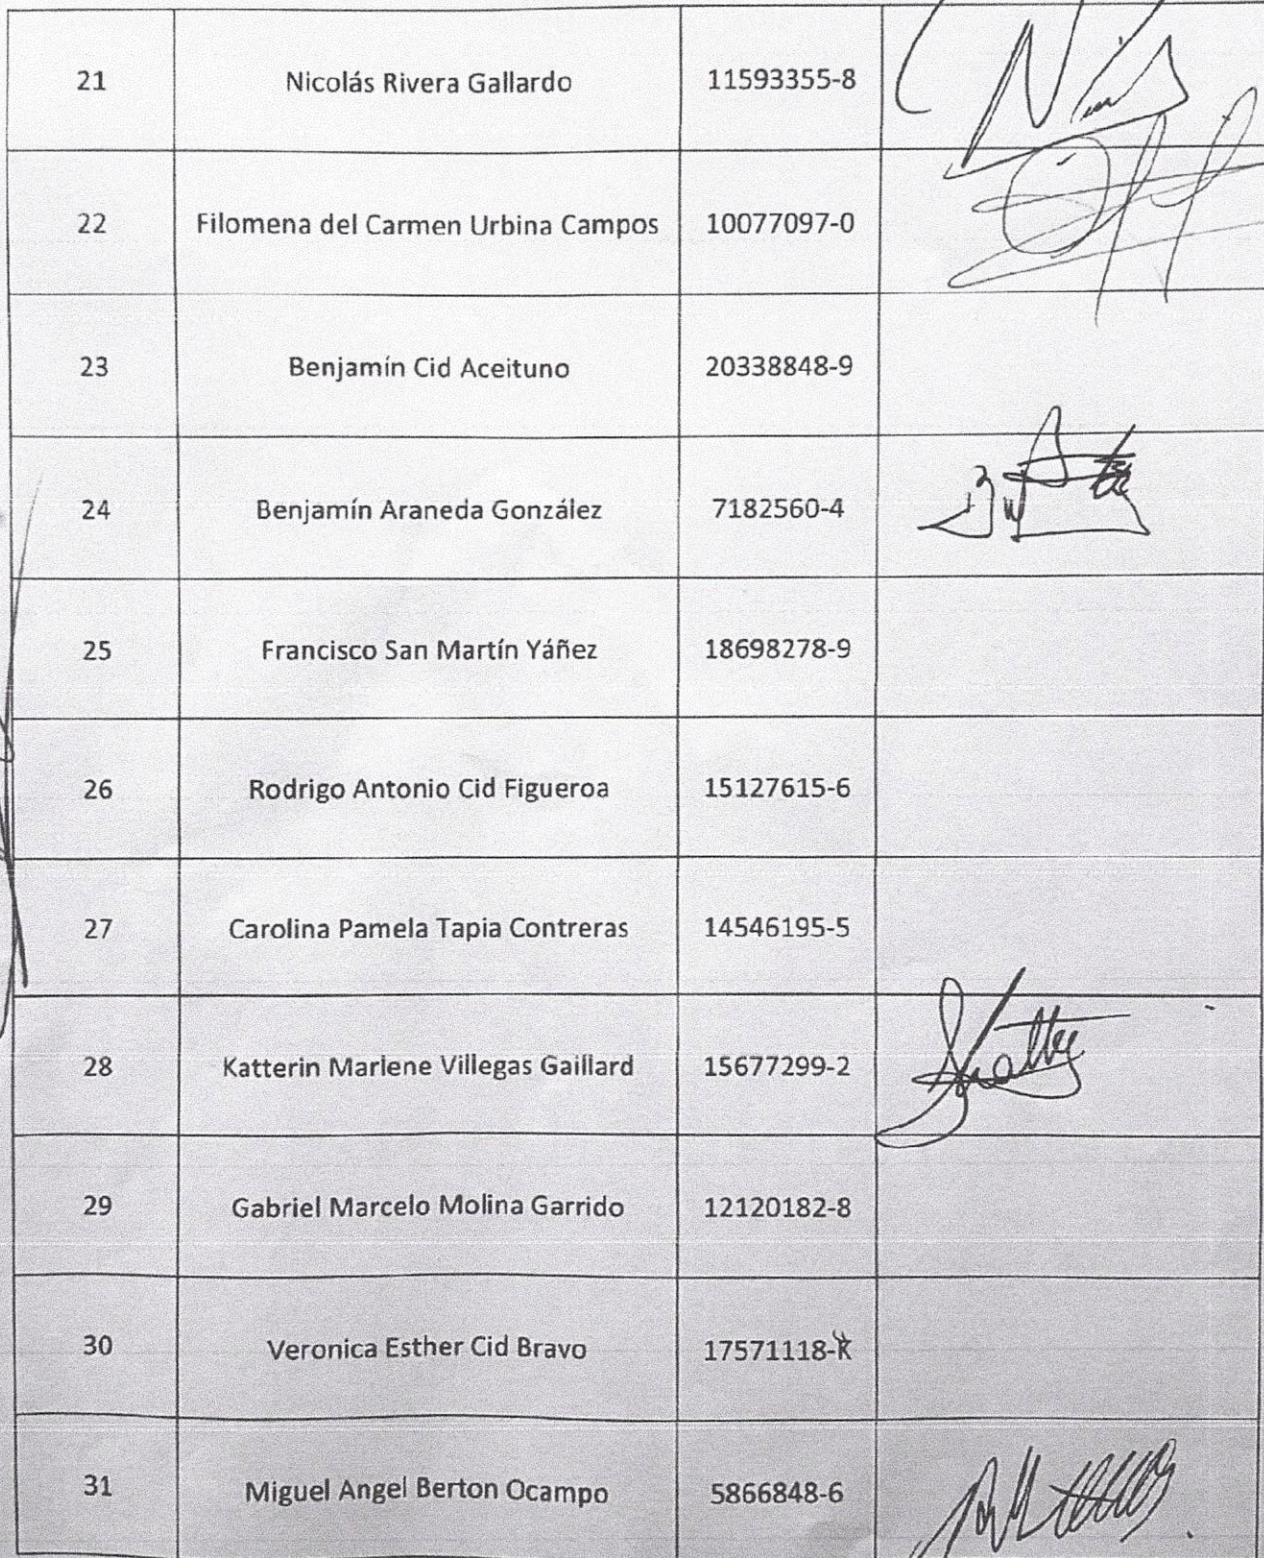 21 Nicolás Rivera Gallardo 11593355-8
22 Filomena del Carmen Urbina Campos 10077097-0
23 Benjamín Cid Aceituno 20338848-9
24 Benjamín Araneda González 7182560-4
25 Francisco San Martín Yáñez 18698278-9
26 Rodrigo Antonio Cid Figueroa 15127615-6
27 Carolina Pamela Tapia Contreras 14546195-5
28 Katterin Marlene Villegas Gaillard 15677299-2
29 Gabriel Marcelo Molina Garrido 12120182-8
30 Veronica Esther Cid Bravo 17571118-K
31 Miguel Angel Berton Ocampo 5866848-6